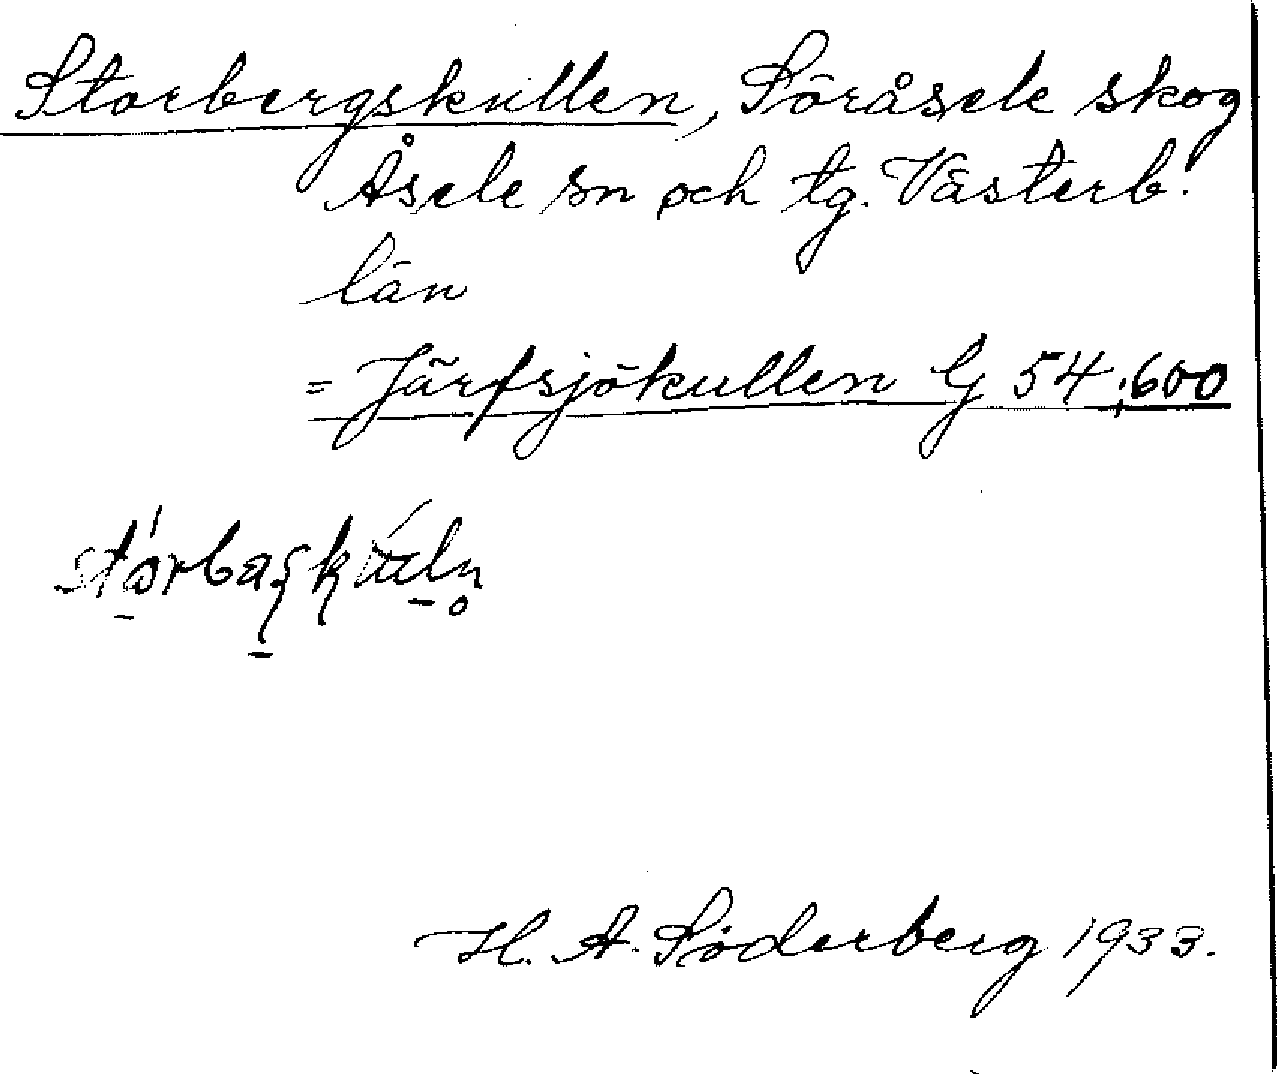 Storbergskullen, Söråsele skog
Åsele sn och tg. Västerb.
län
= Järfsjökullen G 54;600
H. A. Söderberg 1933.